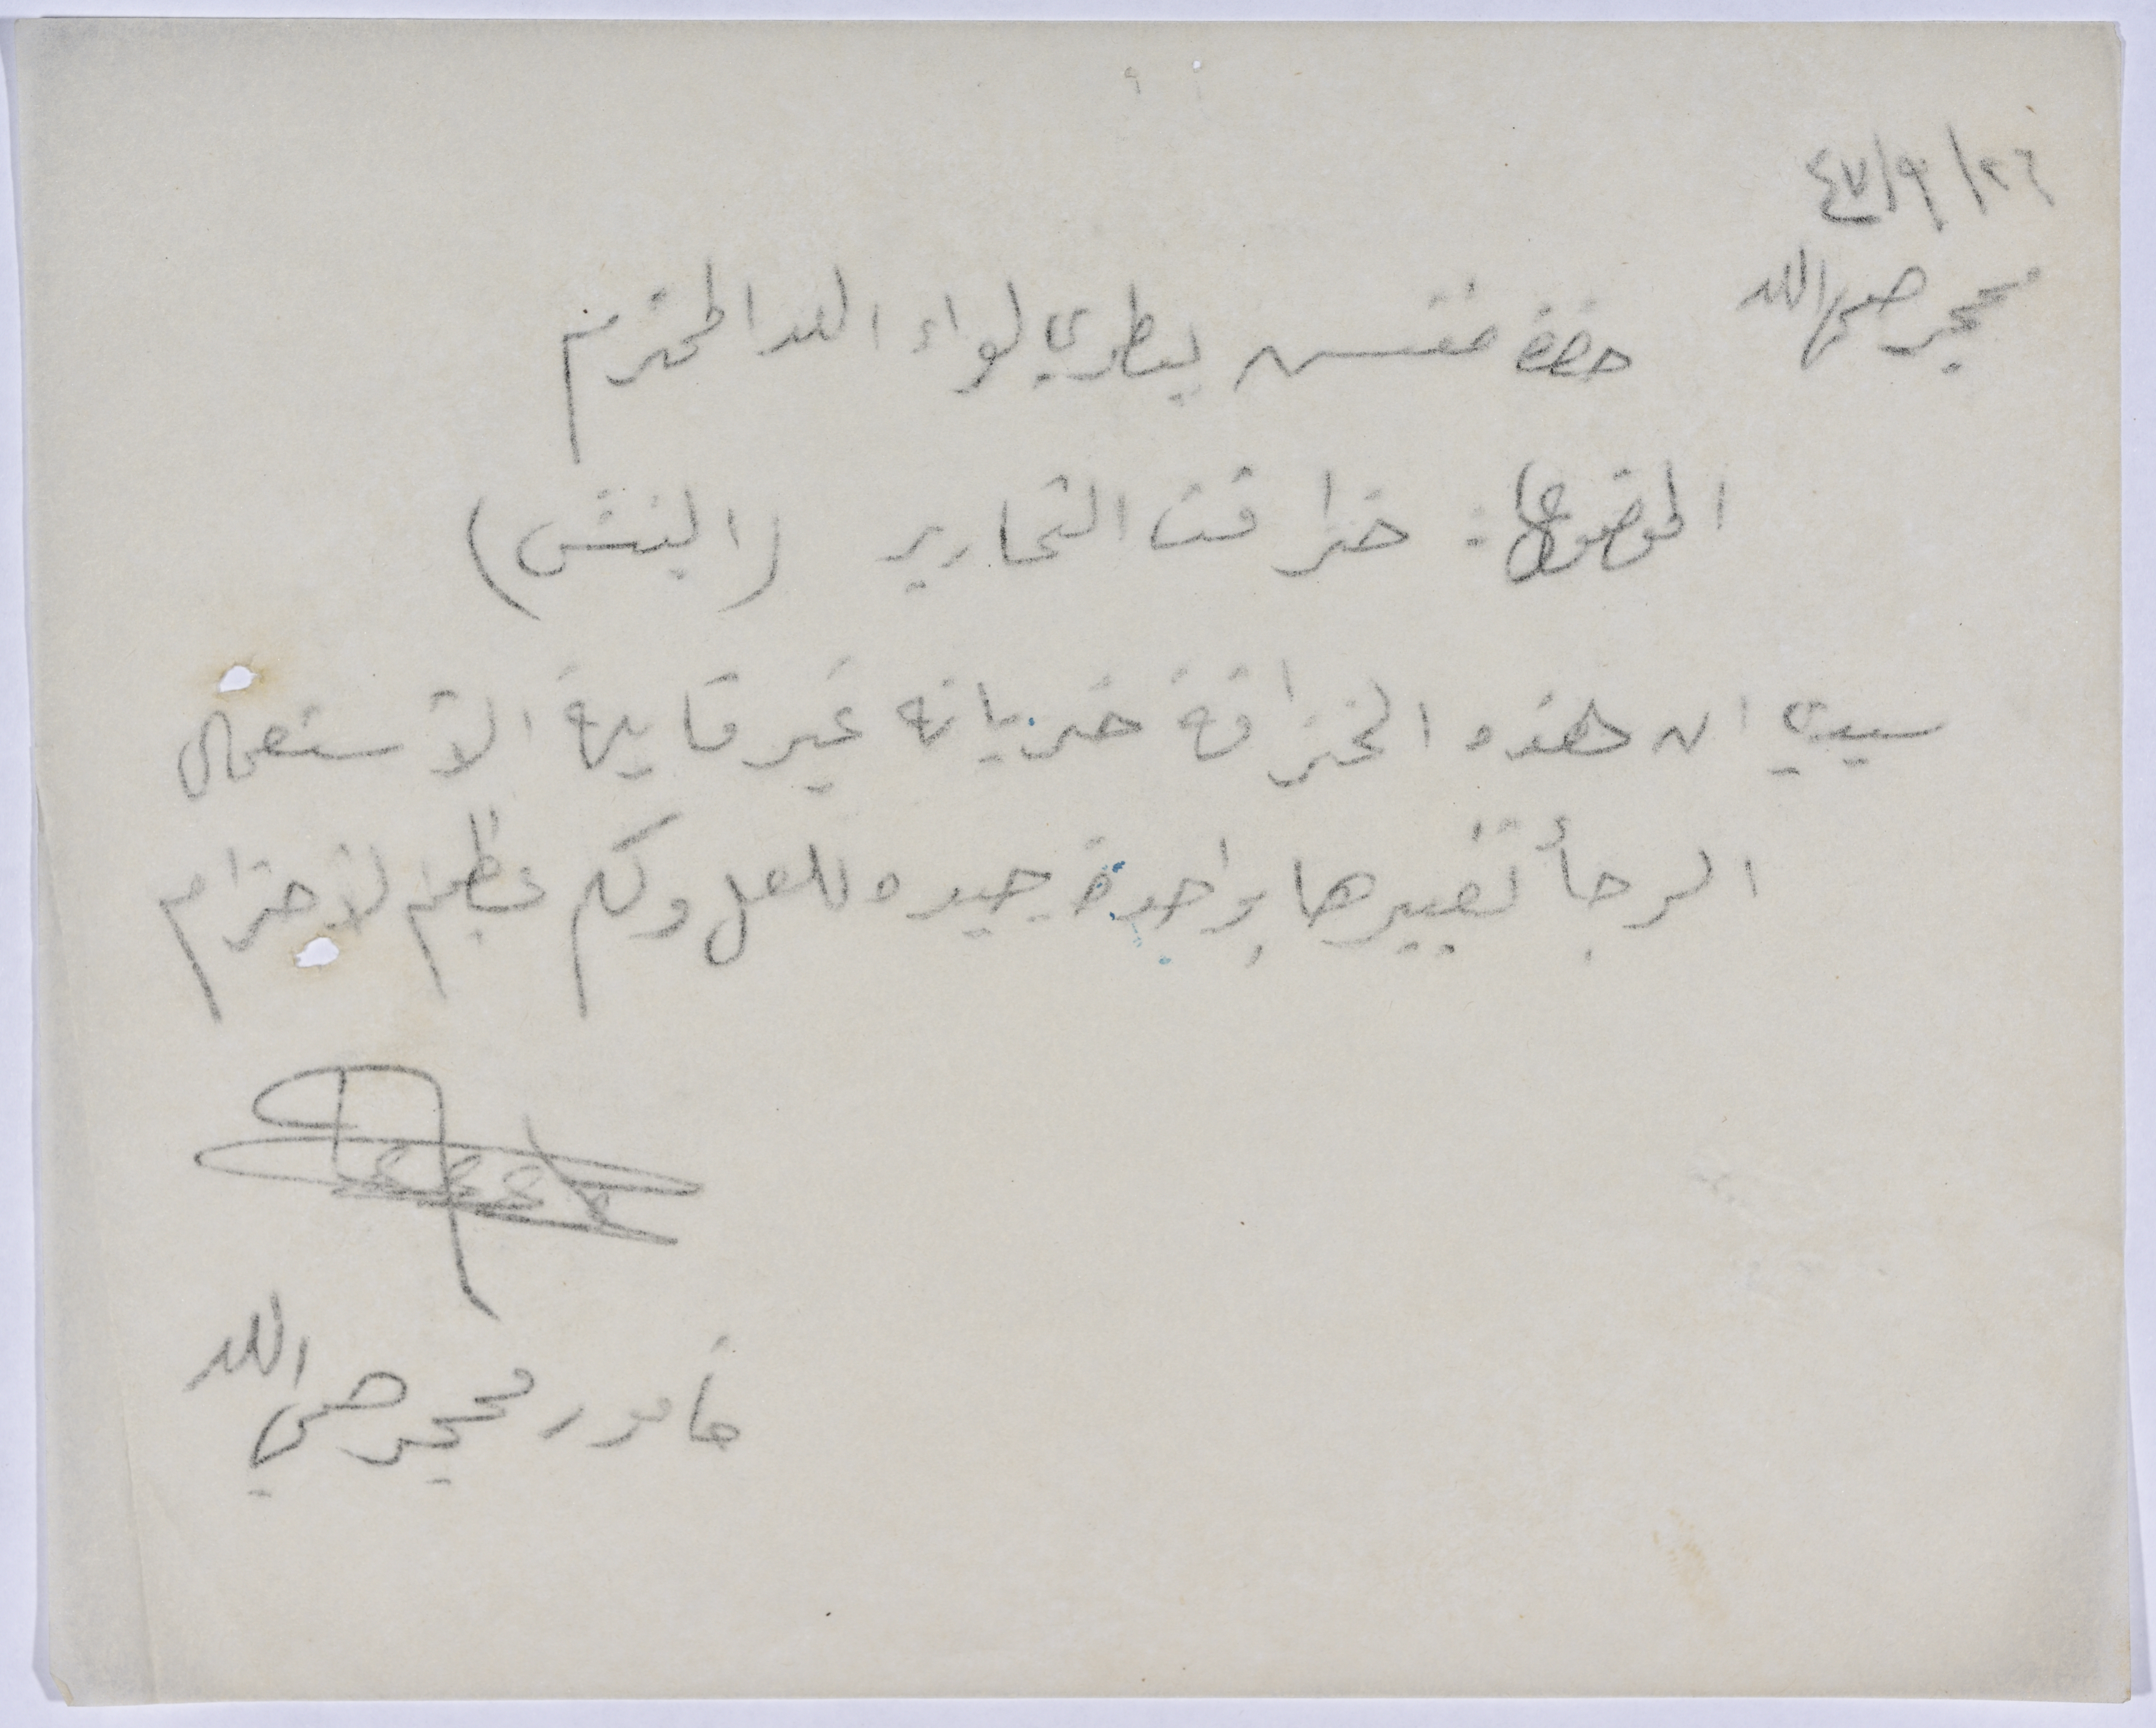 ٢٦/٩/٤٧
محجر صحي اللد
حضرة مفتش بيطري لواء اللد المحترم
الموضوع: خزاقت التحارير (البنش)
سيدي ان هذه الخزاقة خربانه غير قابلة الاستعمال
الرجأ تغييرها بواحدة جيده للعمل ولكم عظيم الاحترام
مأمور محجر صحي اللد